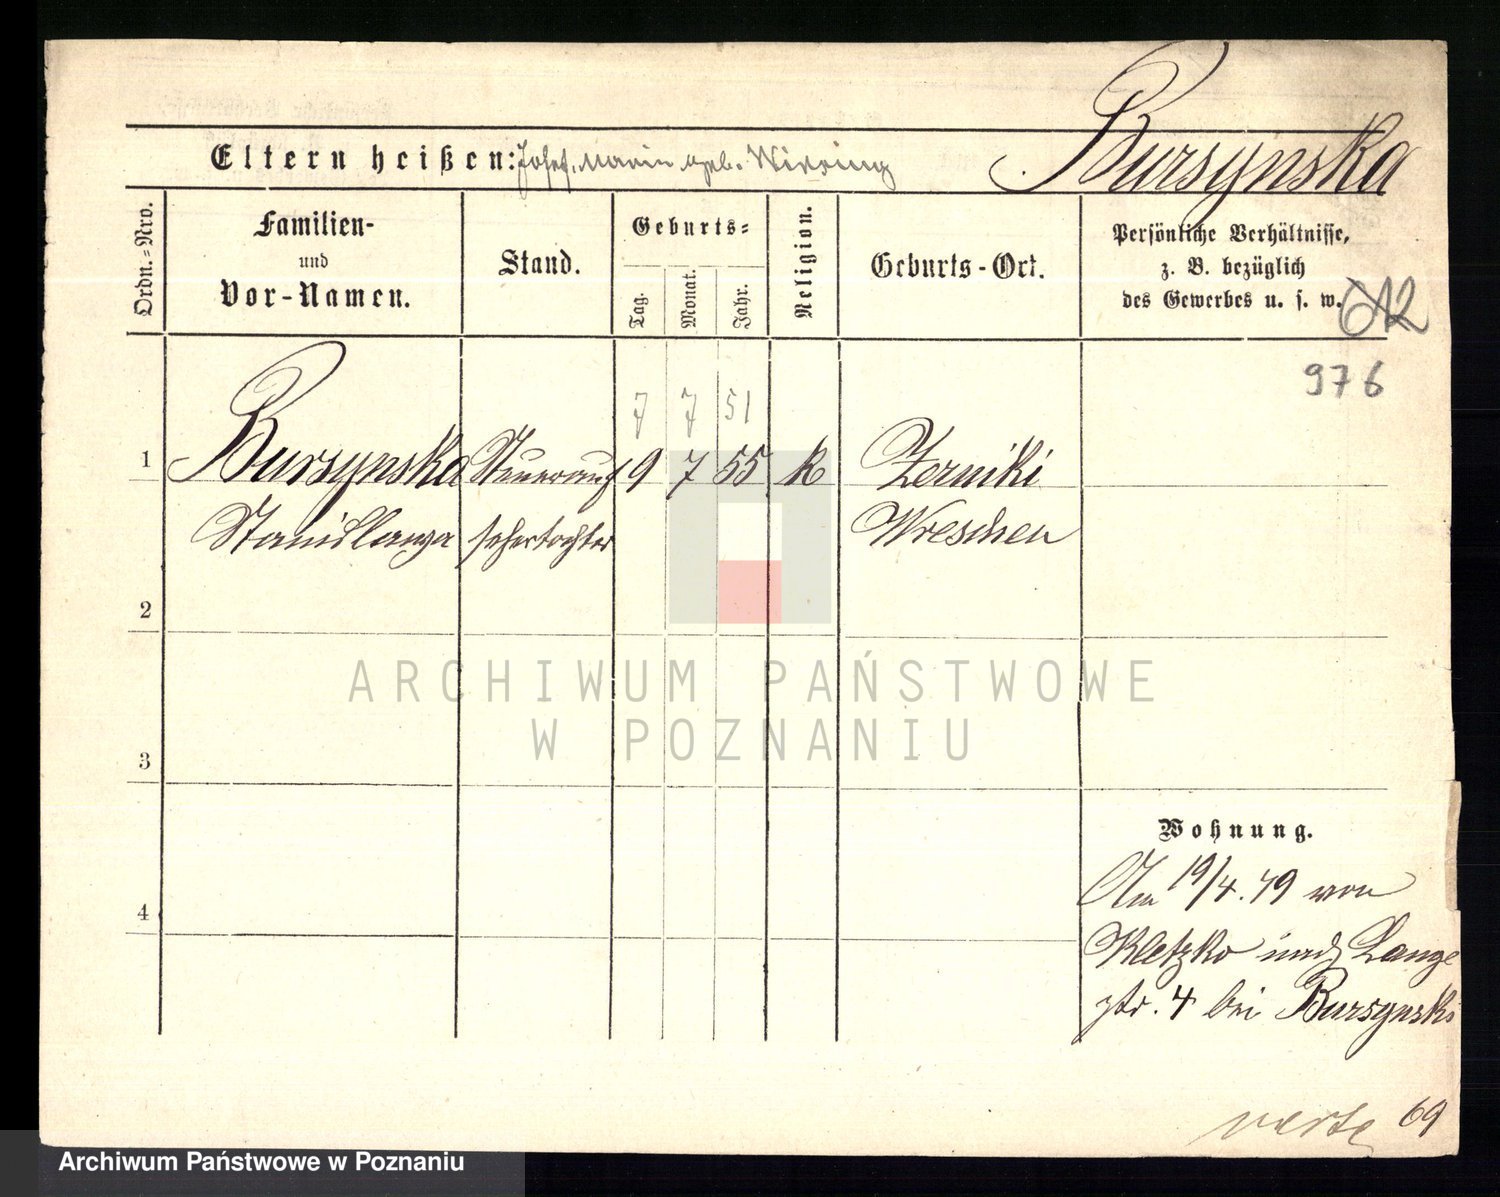 Bursynska
Eltern heißen: Josef, Maria geb.
Ordn.-Nro.
Familien-
und
Vor-Namen.
Stand.
Geburts-
Tag.
Monat.
Jahr.
Religion.
Geburts-Ort.
Persönliche Verhältnisse,
z. B. bezüglich
des Gewerbes u. s. w.
976
7 7 51
1 Bursynska Steuerauf 9 7 55 k Zerniki
Stanislawa sehertochter Wreschen
2
3
4
Wohnung.
Am 19/4.79 von
Kletzko nach Lange
str. 4 bei Bursynski
verte 69
ARCHIWUM PAŃSTWOWE
W POZNANIU
Archiwum Państwowe w Poznaniu